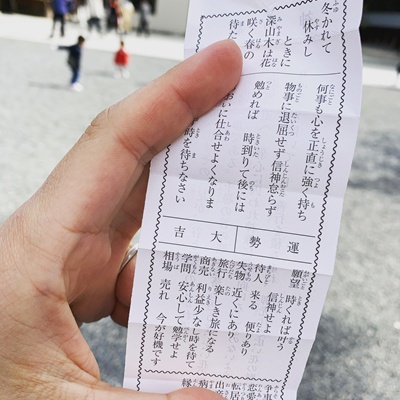 冬かれて
休みし
ときに
深山木は花
咲く春の
待た
何事も心を正直に強く持ち
物事に退屈せず信神怠らず
勉めれば 時到りて後には
いに仕合せよくなりま
時を待ちなさい
運勢 大吉
願望 時くれば叶う
信神せよ
待人 来る 便りあり
失物 近くにあり
旅行 楽しき旅になる
商売 利益少なし時を待て
学問 安心して勉学せよ
相場 売れ 今が好機です
争事
恋愛
転居
出産
病
縁